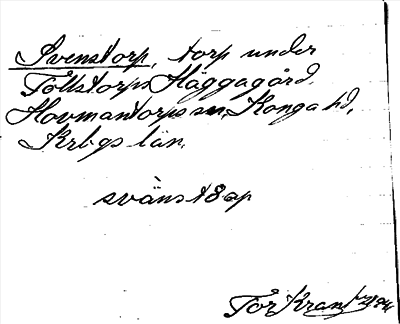 Svenstorp, torp under
Tollstorps Häggagård.
Hovmantorps sn, Konga hd,
Krbgs län.
svänst8ap
Tor Krantz